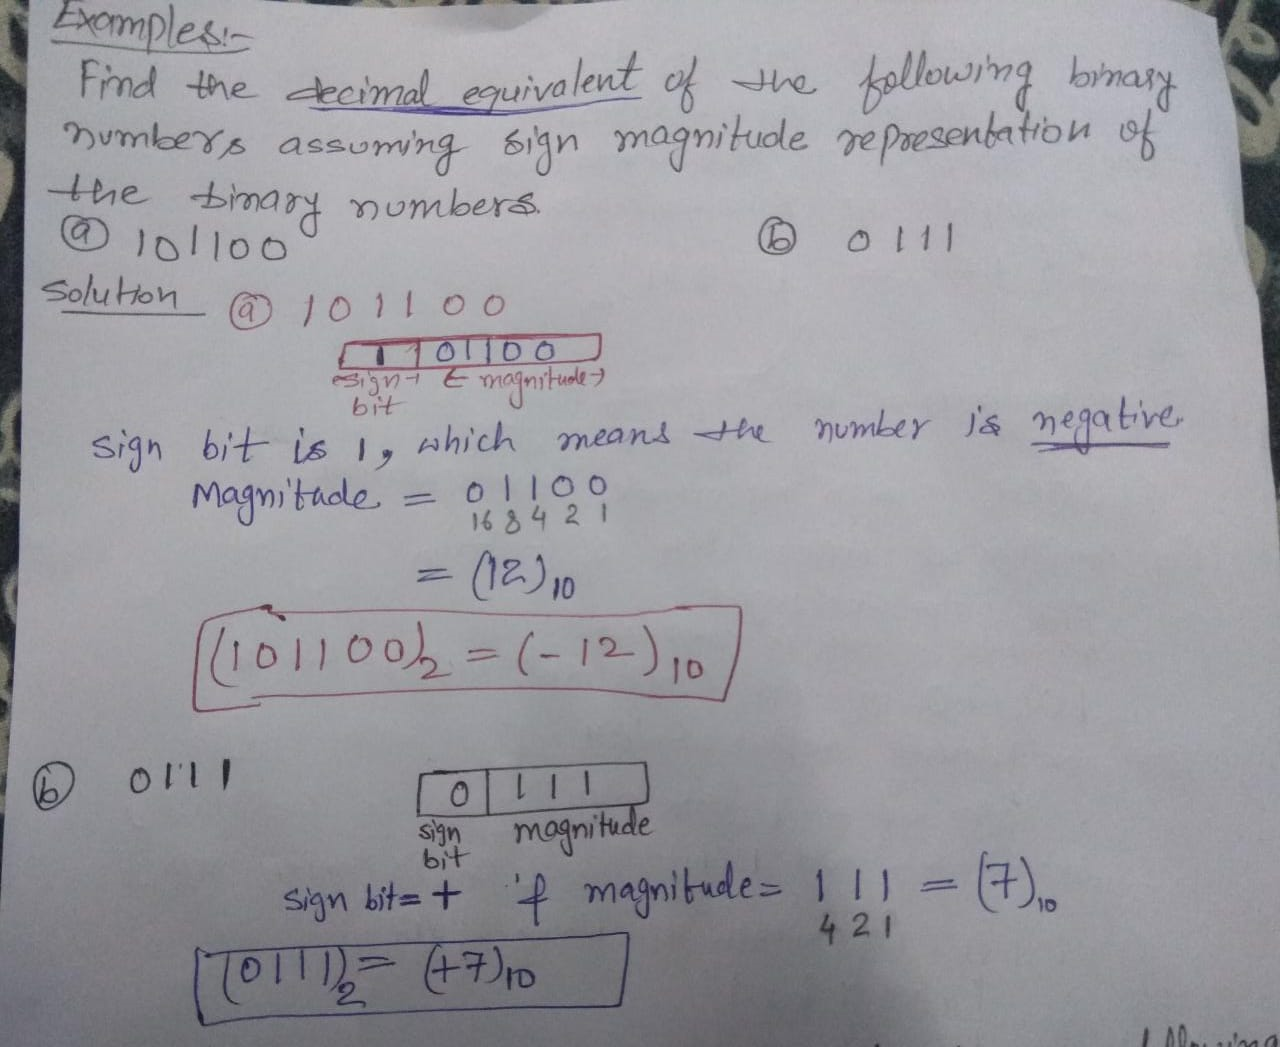 Examples:-
Find the decimal equivalent of the following binary
numbers assuming sign magnitude representation of
the binary numbers.
ⓐ 101100 ⓑ 0111
Solution ⓐ 101100
1 01100
sign bit ← magnitude →
sign bit is 1, which means the number is negative.
Magnitude = 01100
16 8 4 2 1
= (12)10
(101100)2 = (-12)10
ⓑ 0111 0 111
sign bit magnitude
sign bit = + if magnitude = 111 = (7)10
4 2 1
(0111)2 = (+7)10